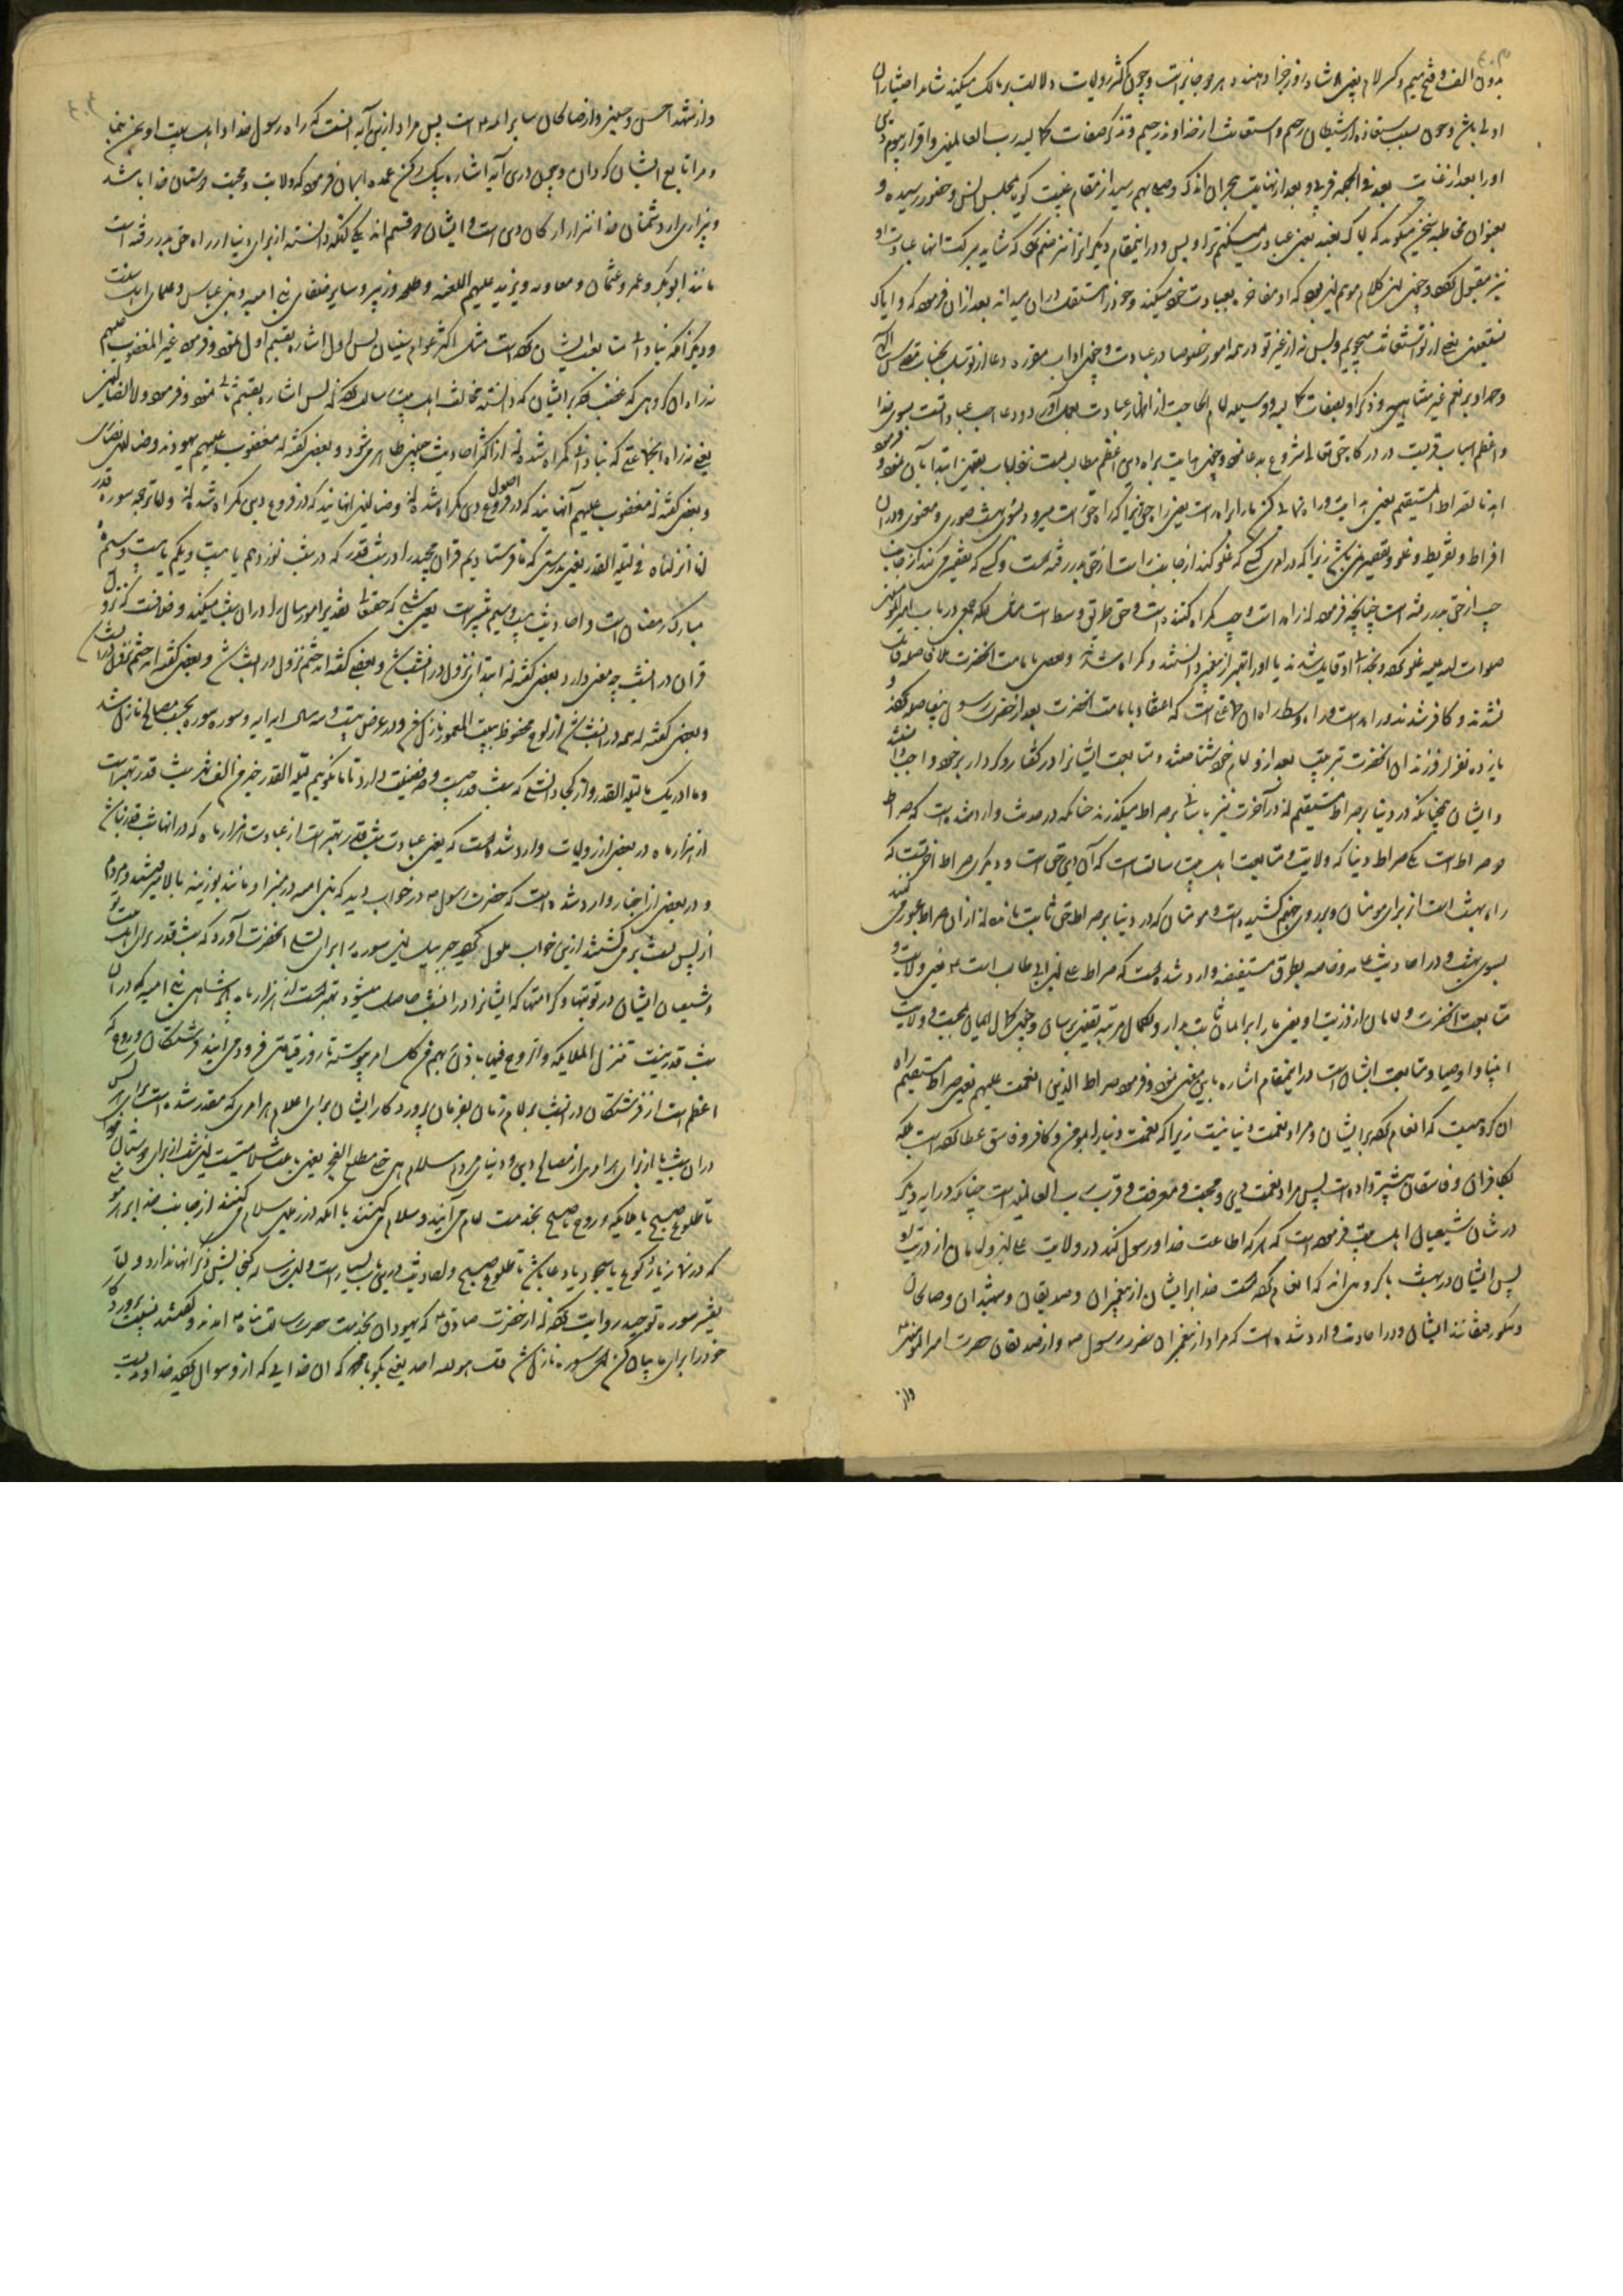 بدون الف و فتح میم و کسر لام یعنی پادشاه روز جزا دهنده هر دو جایز است و چون اکثر روایات دلالت بر مالک میکند شاید اختیار آن
اولی باشد و چون بسبب استعاذه از شیطان رجیم و استعانت از خداوند رحیم و تذکر صفات کمالیه رب العالمین و اقرار بیوم دین
او را بعد از غیبت بعد فی الجمله قربی و بعد از نهایت هجران اندک وصالی بهم رسید از مقام غیبت گویا بمجلس انس و حضور رسیده و
بعنوان مخاطبه سخن میگوید که ایاک نعبد یعنی عبادت میکنیم ترا و بس و در اینمقام دیگرانرا نیز ضم کرد که شاید ببرکت آنها عبادت او
نیز مقبول گردد و چون این کلام موهم این بود که او مفاخره بعبادت خود میکند و خود را مستقل در آن میداند بعد از آن فرمود که و ایاک
نستعین یعنی از تو استعانت میجویم و بس نه از غیر تو در همه امور خصوصا در عبادت و چون آداب مقرره دعا از توسل بجناب مقدس الهی
و حمد او بر نعم غیر متناهی و ذکر او بصفات کمالیه و وسیله امام الحاجت از اظهار عبادت بعمل آورد و دعا احب عبادتست بسوی خدا
و اعظم اسباب قربت در درگاه حق تعالی شروع بدعا نمود و چون هدایت براه دین اعظم مطالبست نزد ارباب یقین ابتدا بآن نمود و فرمود
اهدنا الصراط المستقیم یعنی هدایت و راه نمائی کن ما را براه راست یعنی راه حق زیرا که راه حق راست میرود بسوی بهشت صوری و معنوی و در آن
افراط و تفریط و غلو و تقصیر نمی باشد زیرا که در آن کسی که غلو کند از جانب راست از حق بدر رفته است و کسی که تقصیر میکند از جانب
چپ از حق بدر رفته است چنانچه فرمود که راه راست و چپ گمراه کننده است و حق طریق وسط است مثل آنکه جمعی در باب امیر المؤمنین
صلوات الله علیه غلو کرده و بخدائی او قایل شدند یا او را بهتر از پیغمبر دانستند و گمراه شدند و بعضی بامامت آنحضرت بلا فاصله قایل
نشدند و کافر شدند و راه راست و راه وسط راه آن جماعتی است که اعتقاد بامامت آنحضرت بعد از حضرت رسول بیفاصله کردند و
یازده نفر از فرزندان آنحضرت بترتیب بعد از او امام خود شناختند و متابعت ایشانرا در گفتار و کردار بر خود واجب دانستند
و ایشان چنانکه در دنیا بر صراط مستقیم اند در آخرت نیز بآسانی بر صراط میگذرند چنانکه در حدیث وارد شده است که صراط
دو صراط است یکی صراط دنیا که ولایت و متابعت اهل بیت رسالت است که آن دین حق است و دیگری صراط آخرتست که
راه بهشت است از برای مومنان و بر روی جهنم کشیده است و مومنان که در دنیا بر صراط حق ثابت مانده اند از آن صراط عبور می کنند
بسوی بهشت و در احادیث عامه و خاصه بطرق مستفیضه وارد شده است که صراط علی بن ابی طالب است یعنی ولایت و
متابعت آنحضرت و امامان از ذریت او یعنی ما را بر ایمان ثابت بدار و بکمال مرتبه یقین برسان و چون کمال ایمان بمحبت و ولایت
انبیا و اوصیا و متابعت ایشان است در اینمقام اشاره باین معنی نمود و فرمود صراط الذین انعمت علیهم یعنی صراط مستقیم راه
آن گروهیست که انعام کرده بر ایشان و مراد نعمت دنیا نیست زیرا که نعمت دنیا را بمومن و کافر و فاسق عطا کرده است بلکه
بکافران و فاسقان بیشتر داده است پس مراد نعمت دین و محبت و معرفت و قرب رب العالمین است چنانکه در آیه دیگر
در شان شیعیان اهل بیت فرموده است که هر که اطاعت خدا و رسول کند در ولایت علی و امامان از ذریت او
پس ایشان در بهشت با گروهی اند که انعام کرده است خدا بر ایشان از پیغمبران و صدیقان و شهیدان و صالحان
و نیکو رفیقانند ایشان و در احادیث وارد شده است که مراد از پیغمبران حضرت رسول و از صدیقان حضرت امیر المومنین
واز
واز شهدا حسن و حسین و از صالحان سایر ائمه است پس مراد ازین آیه آنست که راه رسول خدا و اهل بیت او
و متابع ایشان گردان و چون درین آیه اشاره بیک رکن عمده ایمان فرمود که ولایت و محبت دوستان خدا باشد
و بیزاری از دشمنان خدا نیز از ارکان دین است و ایشان دو قسم اند یکی آنکه دانسته از برای دنیا از راه حق بدر رفته است
مانند ابوبکر و عمر و عثمان و معاویه و یزید علیهم اللعنه و طلحه و زبیر و سایر خلفای بنی امیه و بنی عباس و علمای اهل سنت
و دیگر آنکه بنادانی متابعت ایشان کرده است مثل اکثر عوام سنیان پس اول اشاره بقسم اول نمود و فرمود غیر المغضوب علیهم
نه راه آن گروهی که غضب کرده بر ایشان که دانسته مخالفت اهل بیت رسالت کرده اند پس اشاره بقسم ثانی نمود و فرمود و لا الضالین
یعنی نه راه آنجماعتی که بنادانی گمراه شده اند از اکثر احادیث چنین ظاهر میشود و بعضی گفته اند مغضوب علیهم یهودند و ضالین نصاری
و بعضی گفته اند مغضوب علیهم آنهایند که در اصول دین گمراه شده اند و ضالین آنهایند که در فروع دین گمراه شده اند و اما ترجمه سوره قدر
انا انزلناه فی لیلة القدر یعنی بدرستی که ما فرستادیم قرآن مجید را در شب قدر که در شب نوزدهم یا بیست و یکم یا بیست و سیم ماه
مبارک رمضان است و احادیث بیست و سیم بیشتر است یعنی شبی که حقتعالی تقدیر امور سال را در آن شب میکند و خلافست که نزول
قرآن در آنشب چه معنی دارد بعضی گفته اند ابتدای نزول در آنشب شد و بعضی گفته اند ختم نزول در آنشب شد
و بعضی گفته اند همه در آنشب از لوح محفوظ ببیت المعمور نازل شد و در عرض بیست و سه سال آیه آیه و سوره سوره بحسب مصالح نازل شد
و ما ادریک ما لیلة القدر و از کجا دانستی که شب قدر چیست و چه فضیلت دارد تا ما بگوییم لیلة القدر خیر من الف شهر شب قدر بهتر است
از هزار ماه در بعضی از روایات وارد شده است که یعنی عبادت شب قدر بهتر است از عبادت هزار ماه که در آنها شب قدر نباشد
و در بعضی از اخبار وارد شده است که حضرت رسول در خواب دید که بنی امیه در منبر او مانند بوزینه بالا میرفتند و مردم
از پس پشت بر می گشتند ازین خواب ملول گردید جبرئیل این سوره را برای تسلی آنحضرت آورد که شب قدر برای اهل بیت تو
و شیعیان ایشان در ثوابها و کرامتها که ایشانرا در آنشب حاصل میشود بهتر است از هزار ماه پادشاهی بنی امیه که در آن
شب قدر نیست تنزل الملائکة و الروح فیها باذن ربهم من کل امر پیوسته تا روز قیامت فرود می آیند فرشتگان و روح که
اعظم است از فرشتگان در آنشب بر امام زمان بفرمان پروردگار ایشان برای اعلام هر امری که مقدر شده است برای هر کس
در آن شب یا از برای هر امری از مصالح دین و دنیای مردم سلام هی حتی مطلع الفجر یعنی باعث سلامتیست این شب از برای دوستان خدا
تا طلوع صبح یا ملائکه و روح تا صبح بخدمت امام می آیند و سلام می کنند یا آنکه در زمین سلام میکنند از جانب خدا بر هر مؤمنی
که در نماز یا رکوع یا سجود یا دعا باشد تا طلوع صبح و احادیث درین باب بسیار است و این رساله گنجایش ذکر آنها ندارد و اما
تفسیر سوره توحید روایت کرده اند از حضرت صادق که یهودان بخدمت حضرت رسالت پناه آمدند و گفتند نسبت پروردگار
خود را برای ما بیان کن این سوره نازل شد قل هو الله احد یعنی بگو یا محمد که آن خدایی که از او سوال کردید خداوندیست